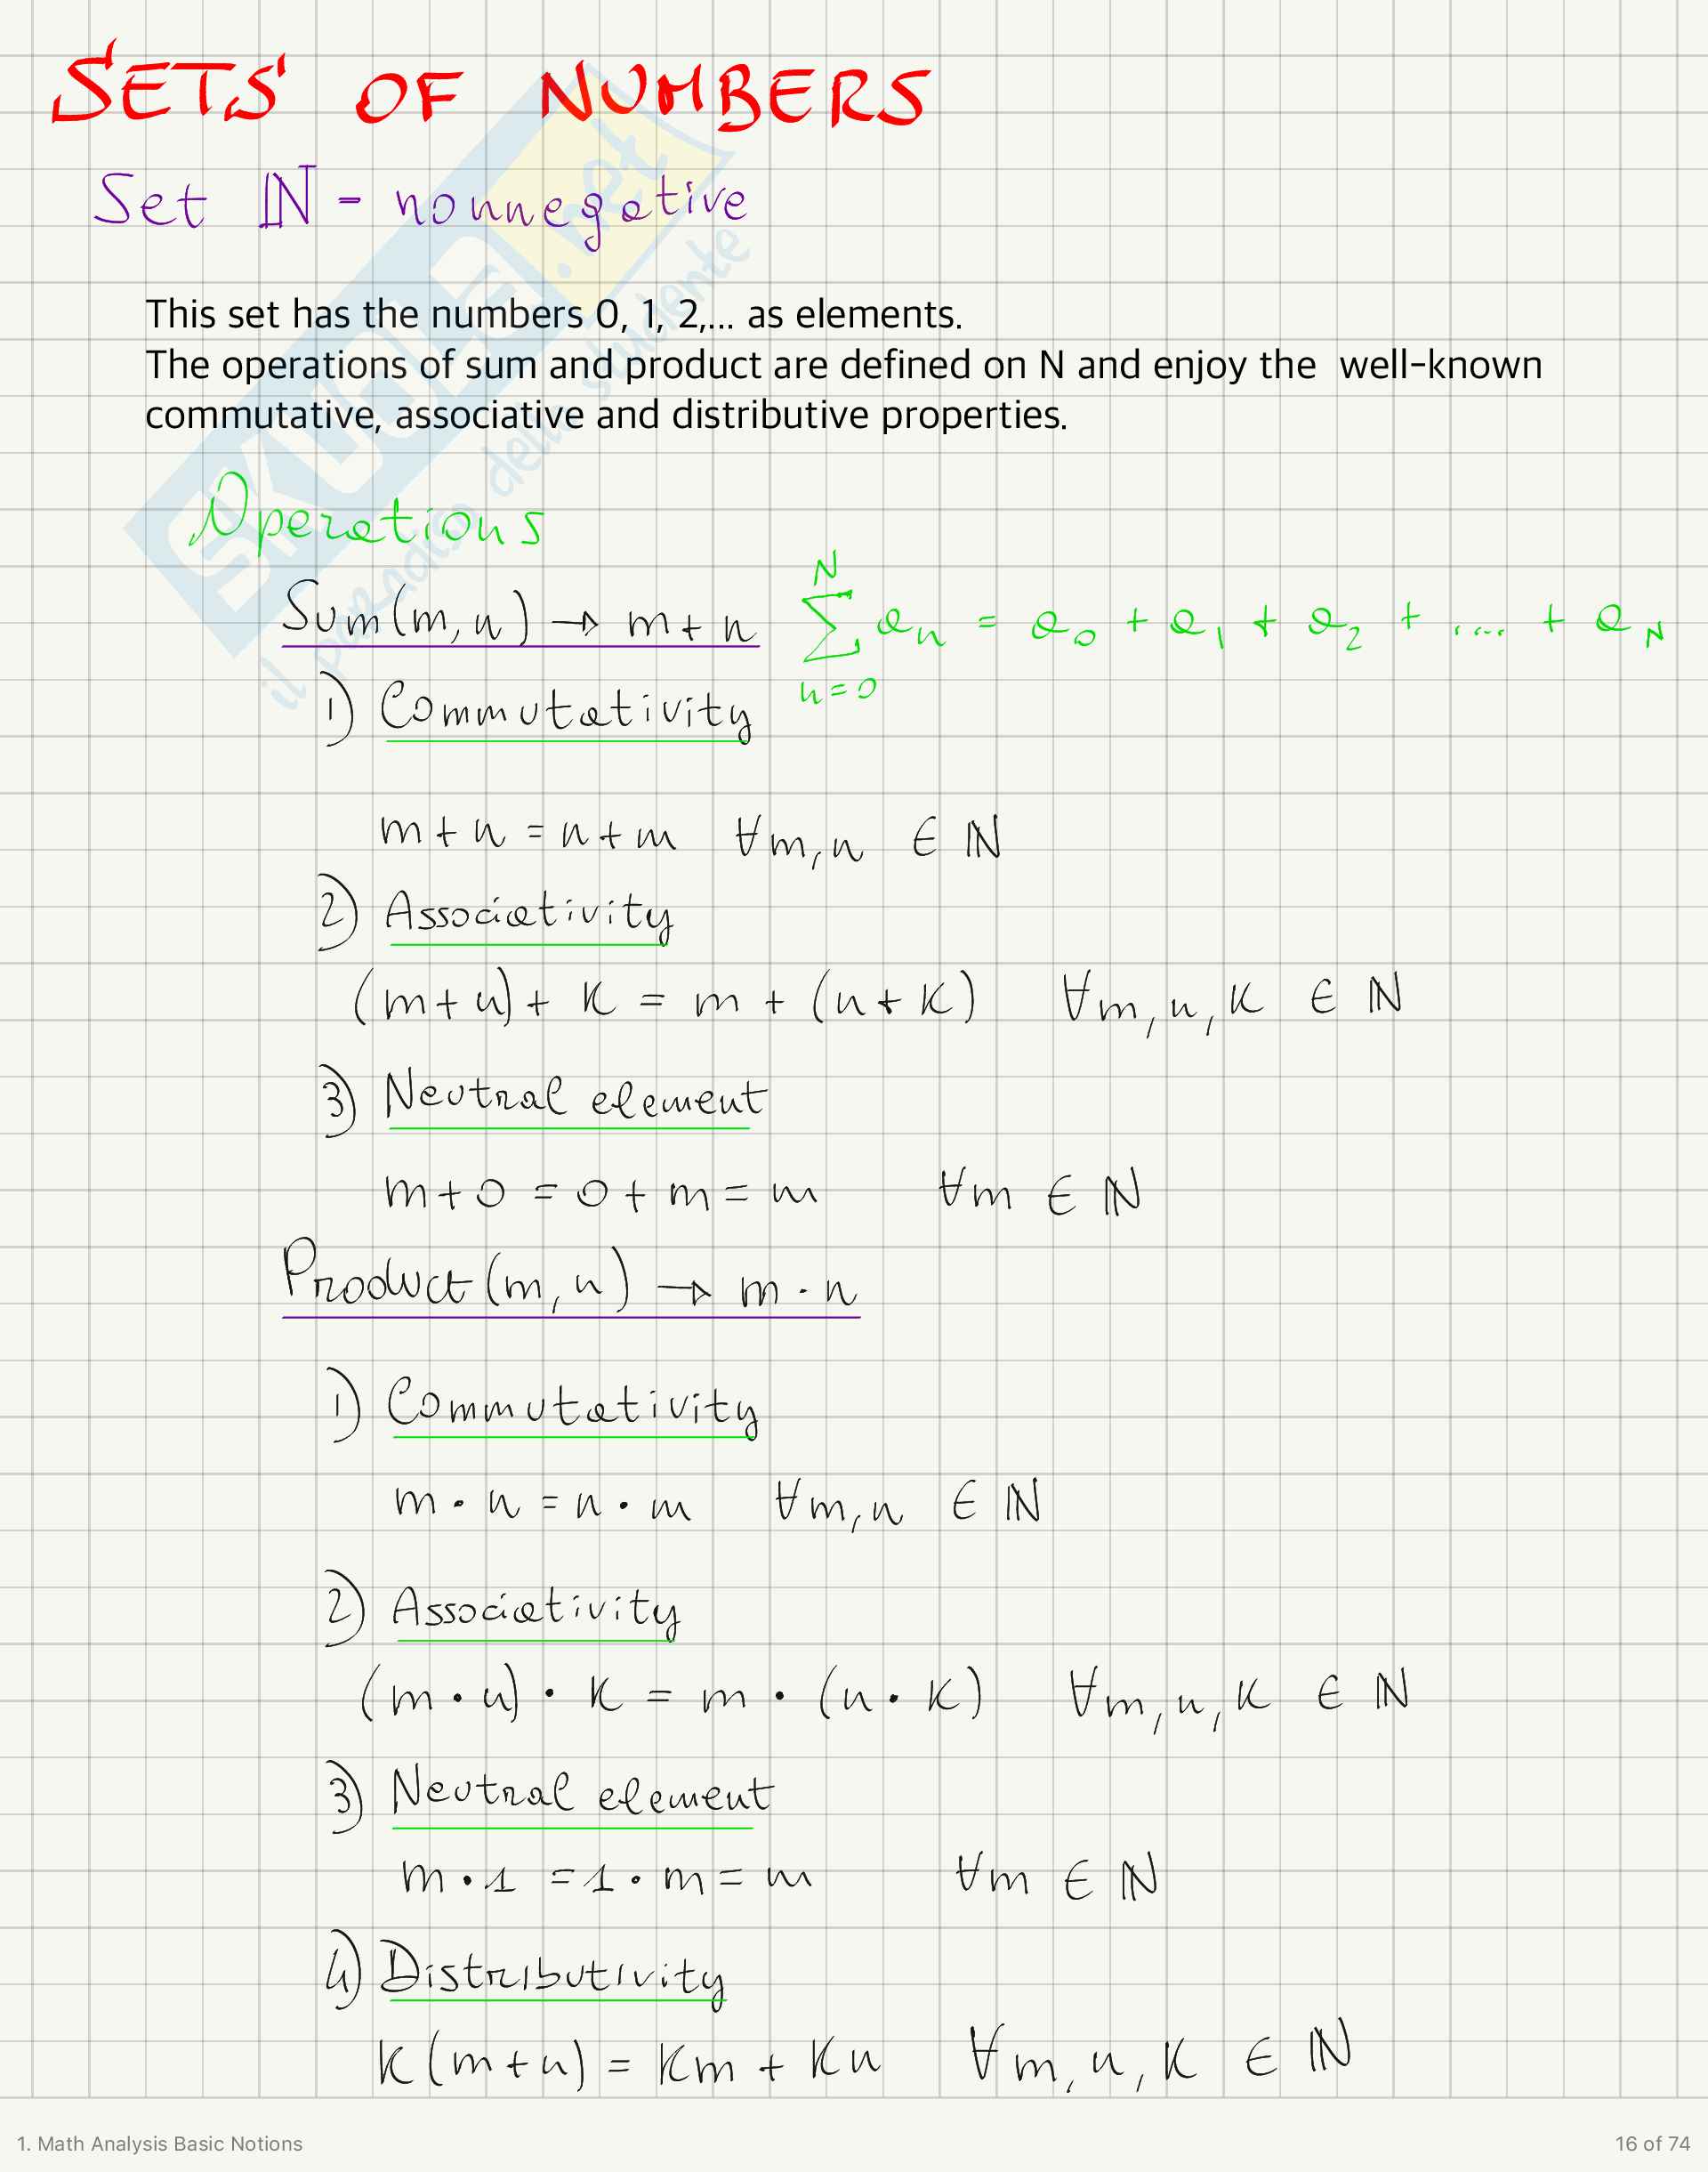 SETS OF NUMBERS
Set ℕ - nonnegative
This set has the numbers 0, 1, 2,... as elements.
The operations of sum and product are defined on N and enjoy the well-known
commutative, associative and distributive properties.
Operations
Sum(m,n) → m+n ∑_{n=0}^{N} a_n = a_0 + a_1 + a_2 + .... + a_N
1) Commutativity
m+n = n+m ∀m,n ∈ ℕ
2) Associativity
(m+n)+ k = m + (n+k) ∀m,n,k ∈ ℕ
3) Neutral element
m+0 = 0+m = m ∀m ∈ ℕ
Product(m,n) → m·n
1) Commutativity
m·n = n·m ∀m,n ∈ ℕ
2) Associativity
(m·n)·k = m·(n·k) ∀m,n,k ∈ ℕ
3) Neutral element
m·1 = 1·m = m ∀m ∈ ℕ
4) Distributivity
k(m+n) = km + kn ∀m,n,k ∈ ℕ
1. Math Analysis Basic Notions 16 of 74
SKUOLA.net
il paradiso dello studente